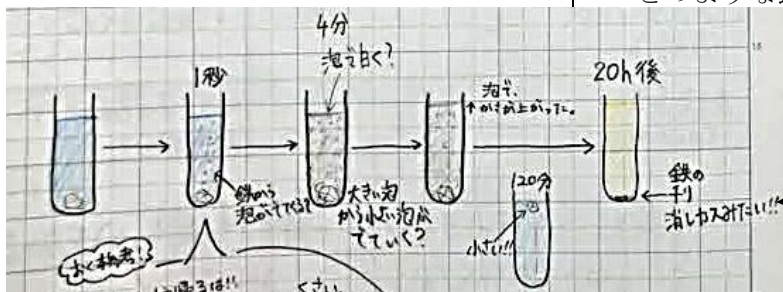 4分
泡で白く?
1秒
20h後
泡で、
↑かさが上がった。
鉄から
泡がでてくる?
大きい泡
から小さい泡が
でていく?
20分
小さい!!
鉄の
消しカスみたい!!
くさい